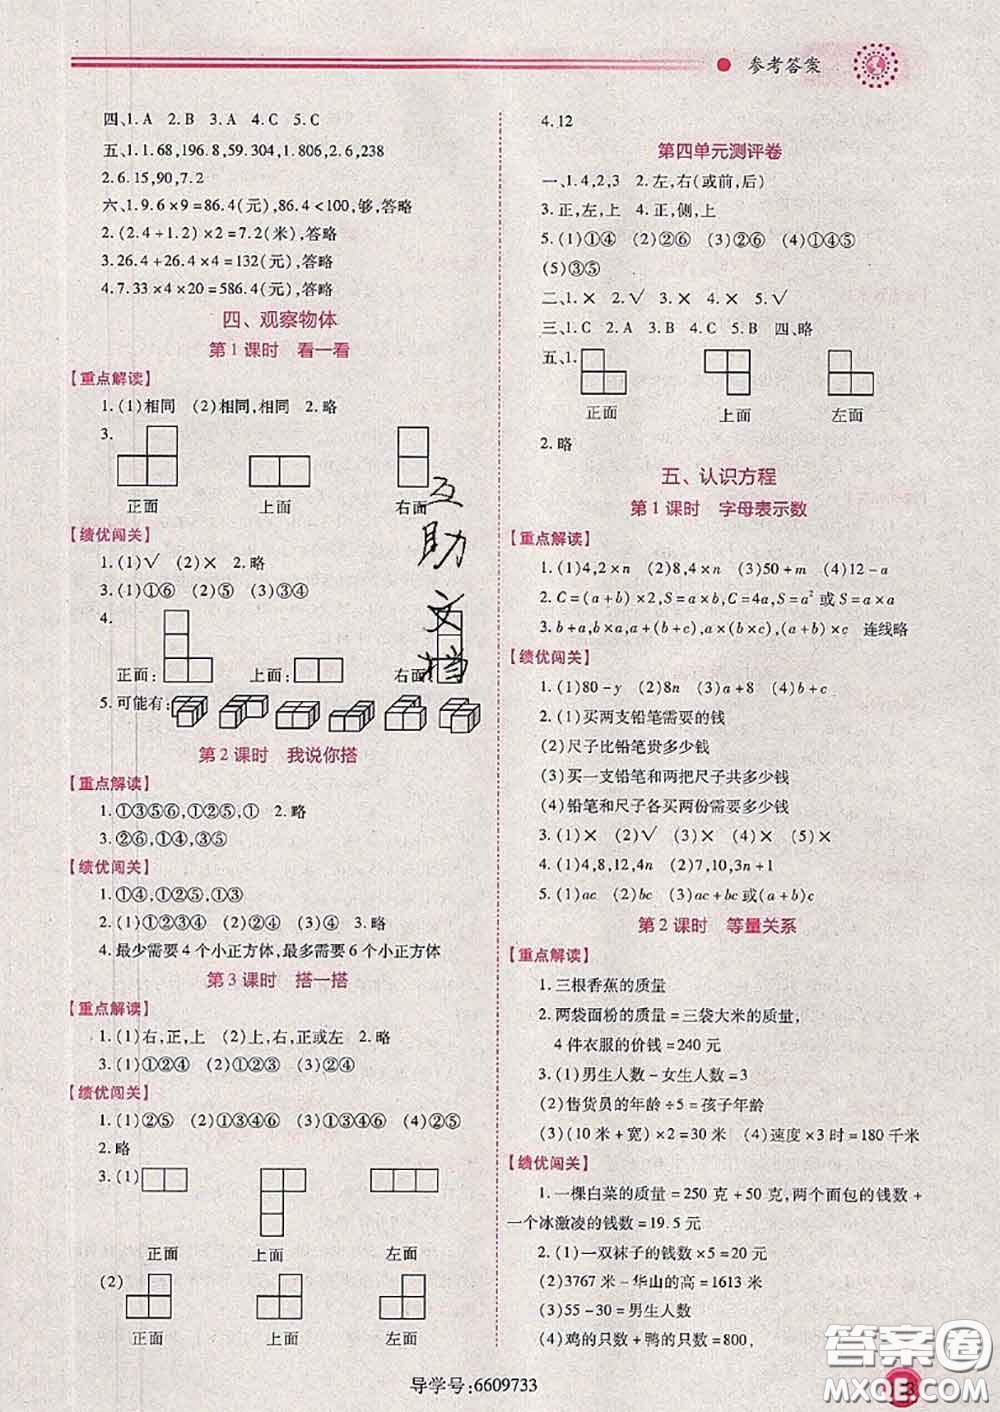 参考答案
四、1.A 2.B 3.A 4.C 5.C
五、1.1.68,196.8,59.304,1.101,2.6,238
2.6.15,90,7.2
六、1.9.6×9=86.4(元),86.4<100,够,答略
2.(2.4+1.2)×2=7.2(米),答略
3.26.4+26.4×4=132(元),答略
4.7.33×4×20=586.4(元),答略
四、观察物体
第1课时 看一看
【重点解读】
1.(1)相同 (2)相同,相同 2.略
3.
正面 上面 右面
【绩优闯关】
1.(1)√ (2)× 2.略
3.(1)①⑥ (2)⑤ (3)③④
4.
正面: 上面: 右面:
5.可能有:
第2课时 我说你搭
【重点解读】
1.①③⑤⑥,①②④⑤,① 2.略
3.②⑥,①④,③⑤
【绩优闯关】
1.①④,①②⑤,①③
2.(1)①②③④ (2)②④ (3)④ 3.略
4.最少需要4个小正方体,最多需要6个小正方体
第3课时 搭一搭
【重点解读】
1.(1)右,正,上 (2)上,右,正或左 2.略
3.(1)①②④ (2)①②③ (3)②④
【绩优闯关】
1.(1)②⑤ (2)①③④⑥ (3)①③④⑥ (4)②⑤
2.略
3.(1)
正面 上面 左面
(2)
正面 上面 左面
4.12
第四单元测评卷
一、1.4,2,3 2.左,右(或前,后)
3.正,左,上 4.正,侧,上
5.(1)①④ (2)②⑥ (3)②⑥ (4)①④⑤
(5)③⑤
二、1.× 2.√ 3.× 4.× 5.√
三、1.C 2.A 3.B 4.C 5.B 四、略
五、1.
正面 上面 左面
2.略
五、认识方程
第1课时 字母表示数
【重点解读】
1.(1)4,2×n (2)8,4×n (3)50+m (4)12-a
2.C=(a+b)×2,S=a×b,C=4a,S=a²或S=a×a
3.b+a,b×a,a+(b+c),a×(b×c),(a+b)×c 连线略
【绩优闯关】
1.(1)80-y (2)8n (3)a+8 (4)b+c
2.(1)买两支铅笔需要的钱
(2)尺子比铅笔贵多少钱
(3)买一支铅笔和两把尺子共多少钱
(4)铅笔和尺子各买两份需要多少钱
3.(1)× (2)√ (3)× (4)× (5)×
4.(1)4,8,12,4n (2)7,10,3n+1
5.(1)ac (2)bc (3)ac+bc或(a+b)c
第2课时 等量关系
【重点解读】
1.三根香蕉的质量
2.两袋面粉的质量=三袋大米的质量,
4件衣服的价钱=240元
3.(1)男生人数-女生人数=3
(2)售货员的年龄÷5=孩子年龄
(3)(10米+宽)×2=30米 (4)速度×3时=180千米
【绩优闯关】
1.一棵白菜的质量=250克+50克,两个面包的钱数+
一个冰激凌的钱数=19.5元
2.(1)一双袜子的钱数×5=20元
(2)3767米-华山的高=1613米
(3)55-30=男生人数
(4)鸡的只数+鸭的只数=800,
互
助
文
档
导学号:6609733
答案圈
MXQE.COM